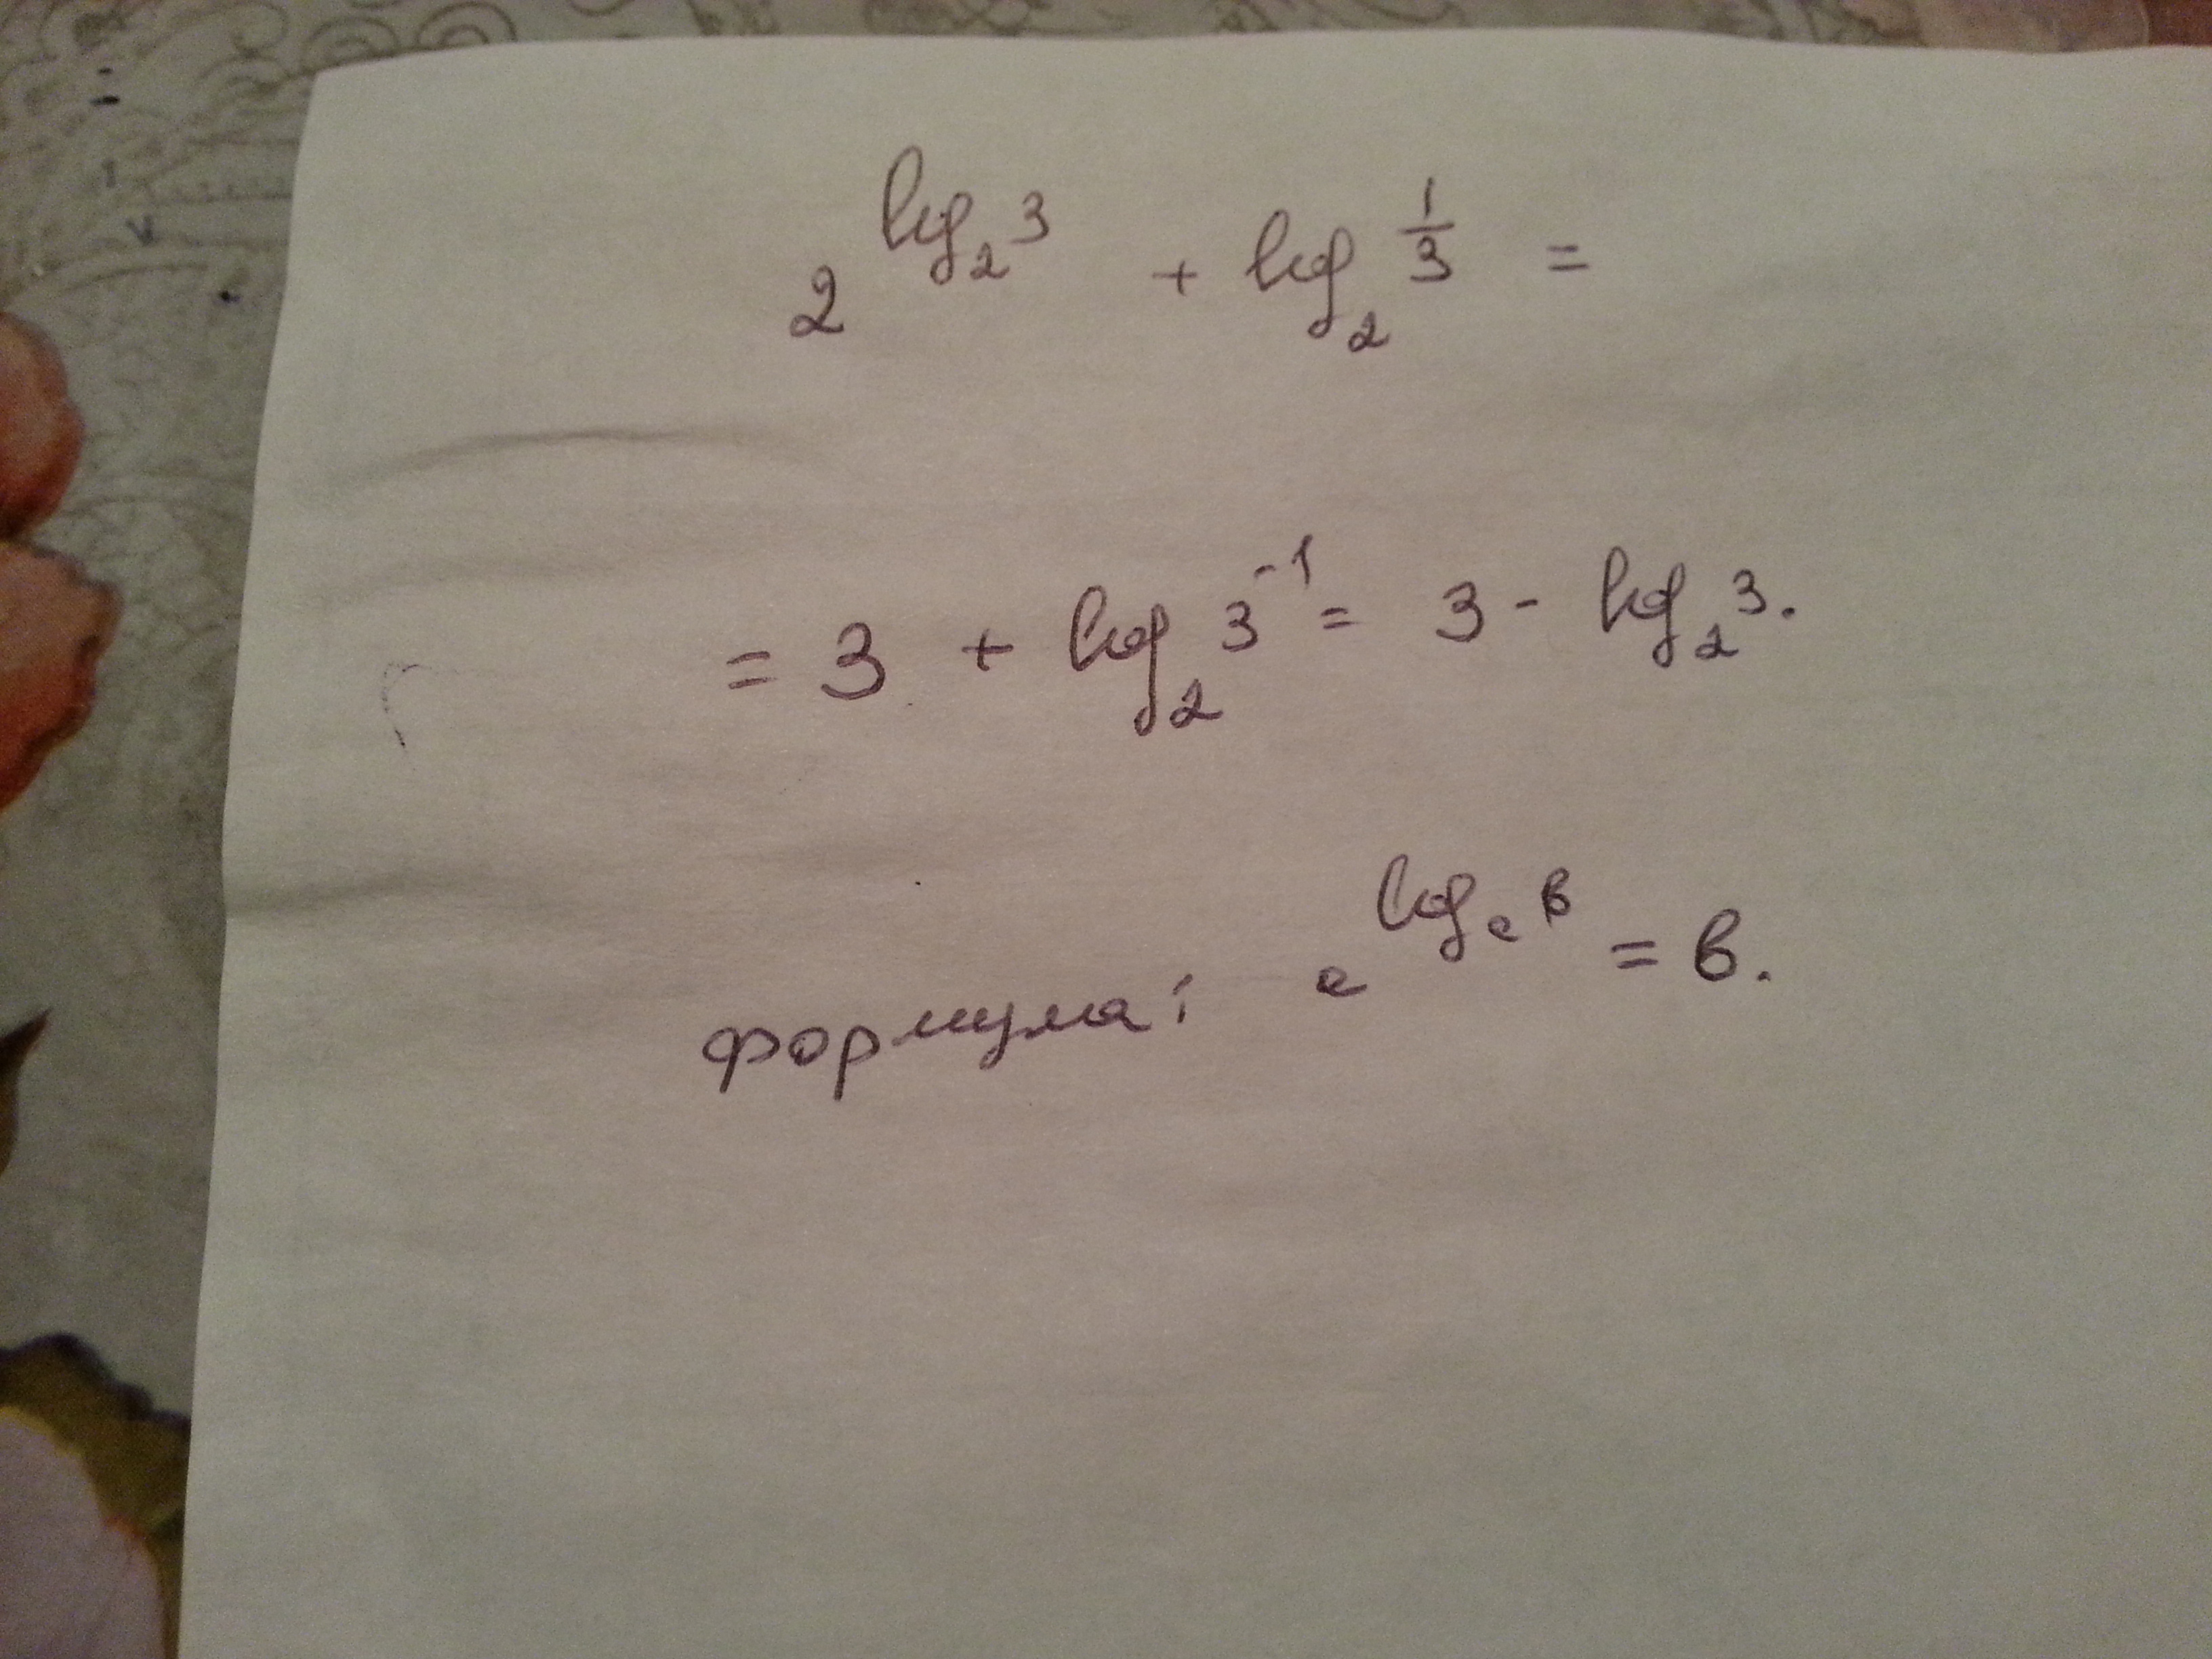 2^{log_2 3} + log_2 \frac{1}{3} =
= 3 + log_2 3^{-1} = 3 - log_2 3.
формула: a^{log_a в} = в.